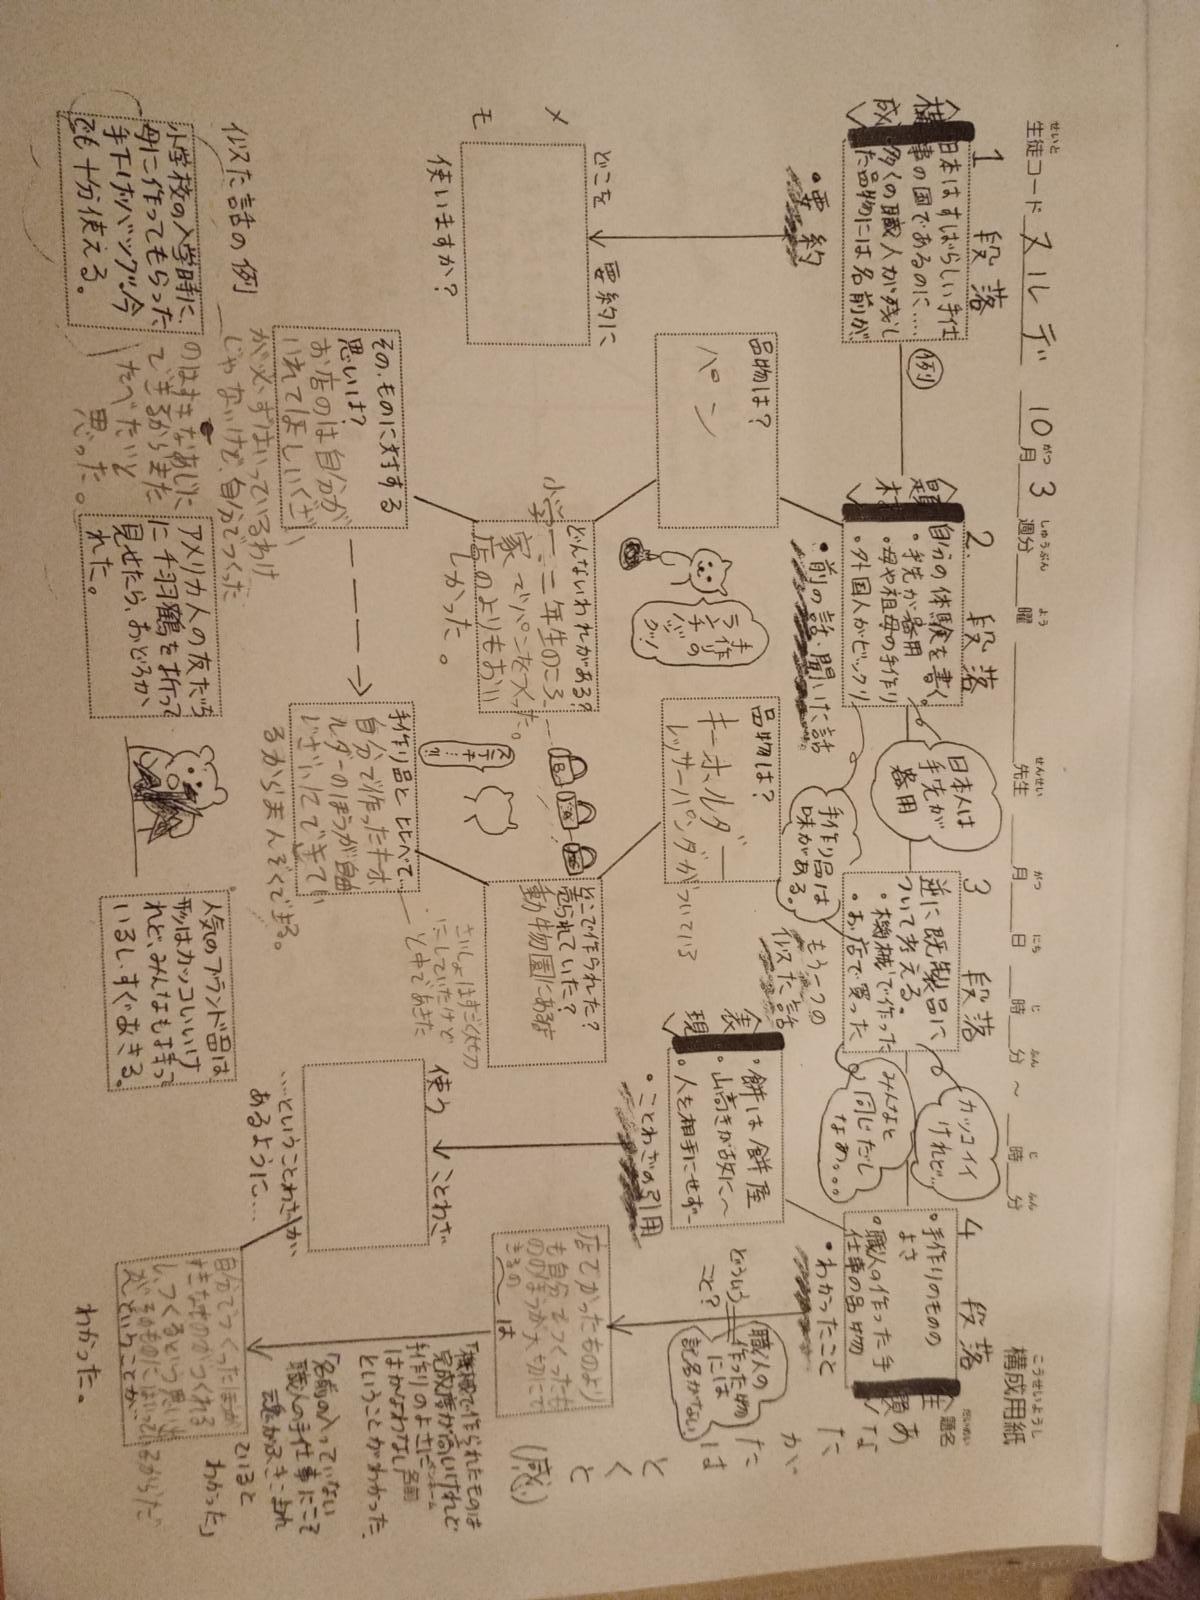 生徒コード ヌルデ 10月3週分 曜 先生 月 日 時 分 〜 時 分
構成用紙
題名
1段落
2.段落
3段落
4段落
構成
日本はすばらしい手仕
事の国であるのに……
多くの職人が残し
た品物には名前が、
・要約
例
題材
自分の体験を書く。
・手先が器用
・母や祖母の手作り
・外国人がビックリ
・前の話・聞いた話
日本人は
手先が
器用
手作り品は
味がある。
逆に既製品に
ついて考える。
・機械で作った
・お店で買った
もう一つの
似た話
カッコイイ
けれど…
みんなと
同じだし
なあ。。。
・手作りのものの
よさ
・職人の作った手
仕事の品物
・わかったこと
主題
表現
・餅は餅屋
・山高きが故に〜
・人を相手にせず〜
・ことわざの引用
どういう
こと?
職人の
作った物
には
記名がない
あなたがたはとくと
(感)
メモ
どこを要約に
使いますか?
品物は?
パン
どんないわれがある?
小学一、二年生のころ
家でパンを
店のよりもおい
しかった。
その、ものに対する
思いは?
お店のは自分が
いれてほしいぐざい
が必ずはいっているわけ
じゃないけど、自分でつくった
のはすきなあじに
できるからまた
たべたいと
思った。
手作りの
ランチバッグ
グッ!
品物は?
キーホルダー
レッサーパンダがついている
どこで作られた?
売られていた?
動物園にある
さいしょはすごく
にしていたけど
と中であきた
手作り品とくらべて…
自分で作ったキーホ
ルダーのほうが自由
じざいにできてい
るからまんぞくできる。
ステキ…!?
使うことわざ
…ということわざが
あるように…
店でかったものより
も自分でつくったも
ののほうが大切にで
きるの
は
「機械で作られたものは
完成度が高いけれど
手作りのよさに
はかなわない」
ということがわかった。
「名前の入っていない
職人の手仕事にこそ
魂がふきこまれ
ていると
わかった」
自分でつくったほうが
すきなものがつくれる
し、つくるという思い
がそのものにはいっているからだ
ということが…
わかった。
似た話の例
小学校の入学時に
母に作ってもらった
手下げバッグ。今
でも十分使える。
アメリカ人の友だち
に千羽鶴を折って
見せたら、おどろか
れた。
人気のブランド品は
形はカッコいいけ
れど、みんなもも持って
いるし、すぐあきる。